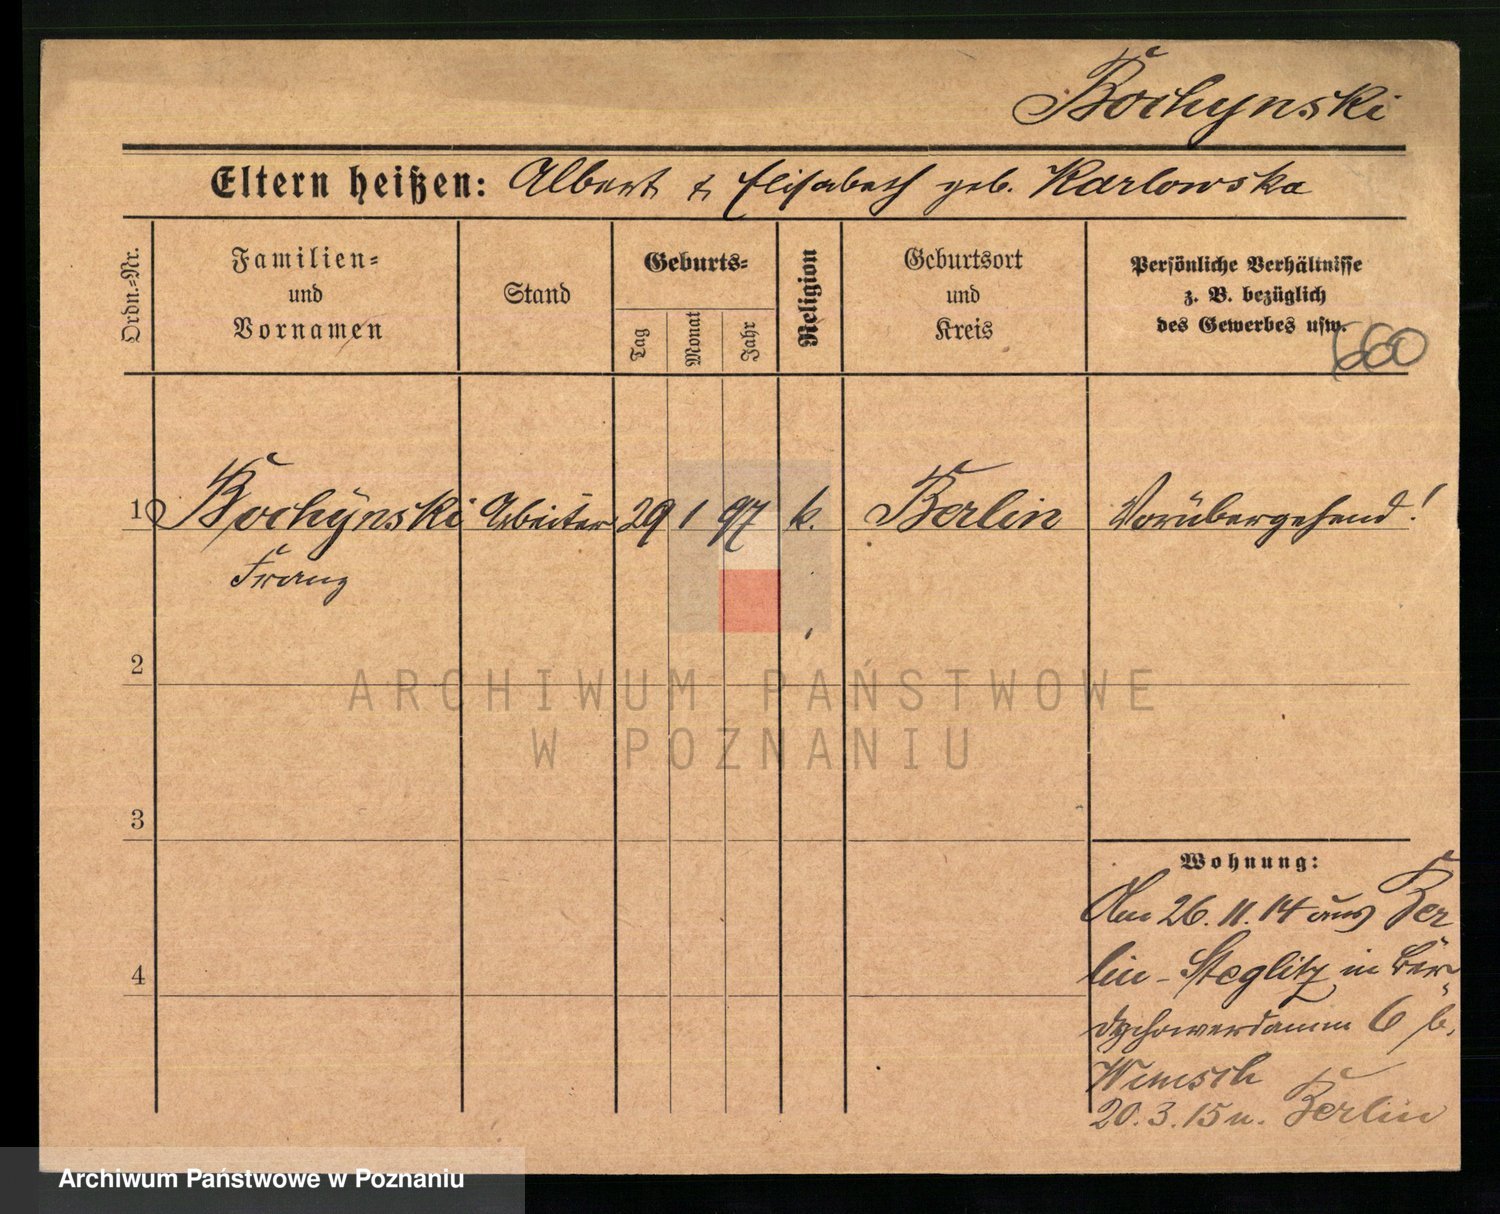 Bochynski
Eltern heißen: Albert & Elisabeth geb. Karlowska
Ordn.-Nr.
Familien= und Vornamen
Stand
Geburts=
Tag
Monat
Jahr
Religion
Geburtsort und Kreis
Persönliche Verhältnisse
z. B. bezüglich
des Gewerbes usw.
660
1 Bochynski Arbeiter 29 1 97 k. Berlin Vorübergehend!
Franz
2
ARCHIWUM PAŃSTWOWE
W POZNANIU
3
Wohnung:
Am 26.11.14 aus Ber
4
lin-Steglitz in
6 b.
20.3.15 n. Berlin
Archiwum Państwowe w Poznaniu